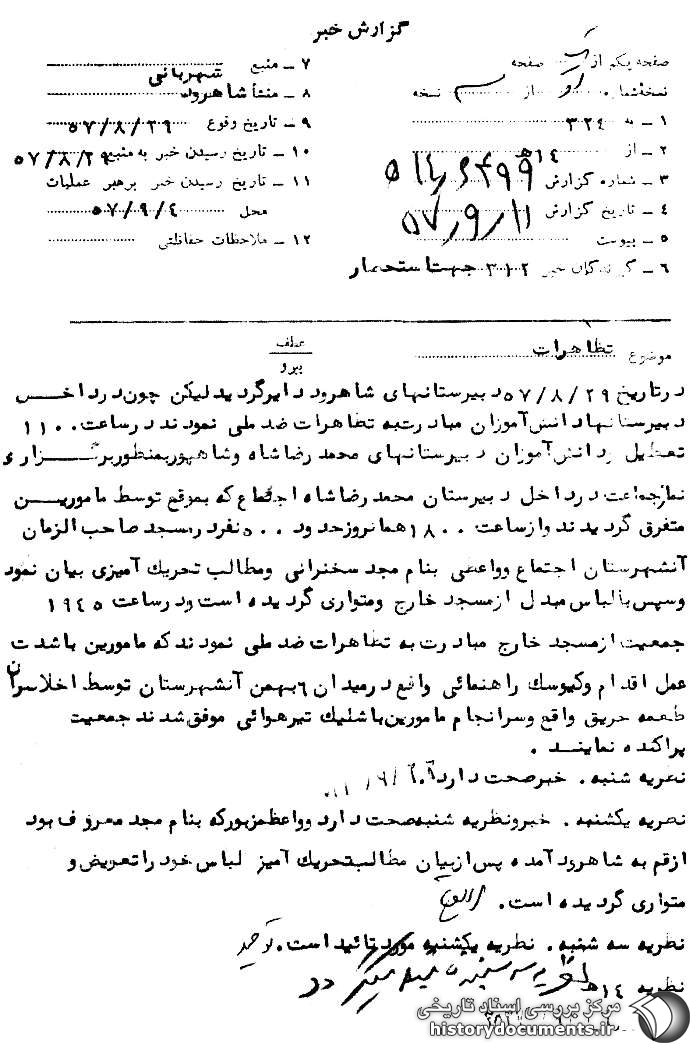 گزارش خبر
صفحه یکم از یک صفحه
نسخه شماره از سه نسخه
۱ ـ به ۳۲۴
۲ ـ از ۱۴ ه
۳ ـ شماره گزارش
۴ ـ تاریخ گزارش ۵۷٫۹٫۱۱
۵ ـ پیوست
۶ ـ گیرندگان خبر ۳۱۲ جهت استحضار
۷ ـ منبع شهربانی
۸ ـ منشأ شاهرود
۹ ـ تاریخ وقوع ۵۷/۸/۲۹
۱۰ ـ تاریخ رسیدن خبر به منبع ۵۷/۸/۲۹
۱۱ ـ تاریخ رسیدن خبر برهبر عملیات
محل ۵۷/۹/۴
۱۲ ـ ملاحظات حفاظتی
موضوع تظاهرات
عطف
پیرو
در تاریخ ۵۷/۸/۲۹ دبیرستانهای شاهرود دایر گردید لیکن چون در داخل
دبیرستانها دانش آموزان مبادرت به تظاهرات ضد ملی نمودند در ساعت ۱۱۰۰
تعطیل و دانش آموزان دبیرستانهای محمد رضا شاه و شاهپور بمنظور برگزاری
نماز جماعت در داخل دبیرستان محمد رضا شاه اجتماع که بموقع توسط مامورین
متفرق گردیدند و از ساعت ۱۸۰۰ همانروز حدود ۵۰۰ نفر در مسجد صاحب الزمان
آنشهرستان اجتماع و واعظی بنام مجد سخنرانی و مطالب تحریک آمیزی بیان نمود
و سپس با لباس مبدل از مسجد خارج و متواری گردیده است و در ساعت ۱۹۴۵
جمعیت از مسجد خارج مبادرت به تظاهرات ضد ملی نمودند که مامورین با شدت
عمل اقدام و کیوسک راهنمائی واقع در میدان ۶ بهمن آنشهرستان توسط اخلالگران
طعمه حریق واقع و سرانجام مامورین با شلیک تیر هوائی موفق شدند جمعیت
پراکنده نمایند .
نظریه شنبه . خبر صحت دارد .
نظریه یکشنبه . خبر و نظریه شنبه صحت دارد و واعظ مزبور که بنام مجد معروف بود
از قم به شاهرود آمده پس از بیان مطالب تحریک آمیز لباس خود را تعویض و
متواری گردیده است .
نظریه سه شنبه . نظریه یکشنبه مورد تائید است .
نظریه ۱۴ ه
مرکز بررسی اسناد تاریخی
historydocuments.ir